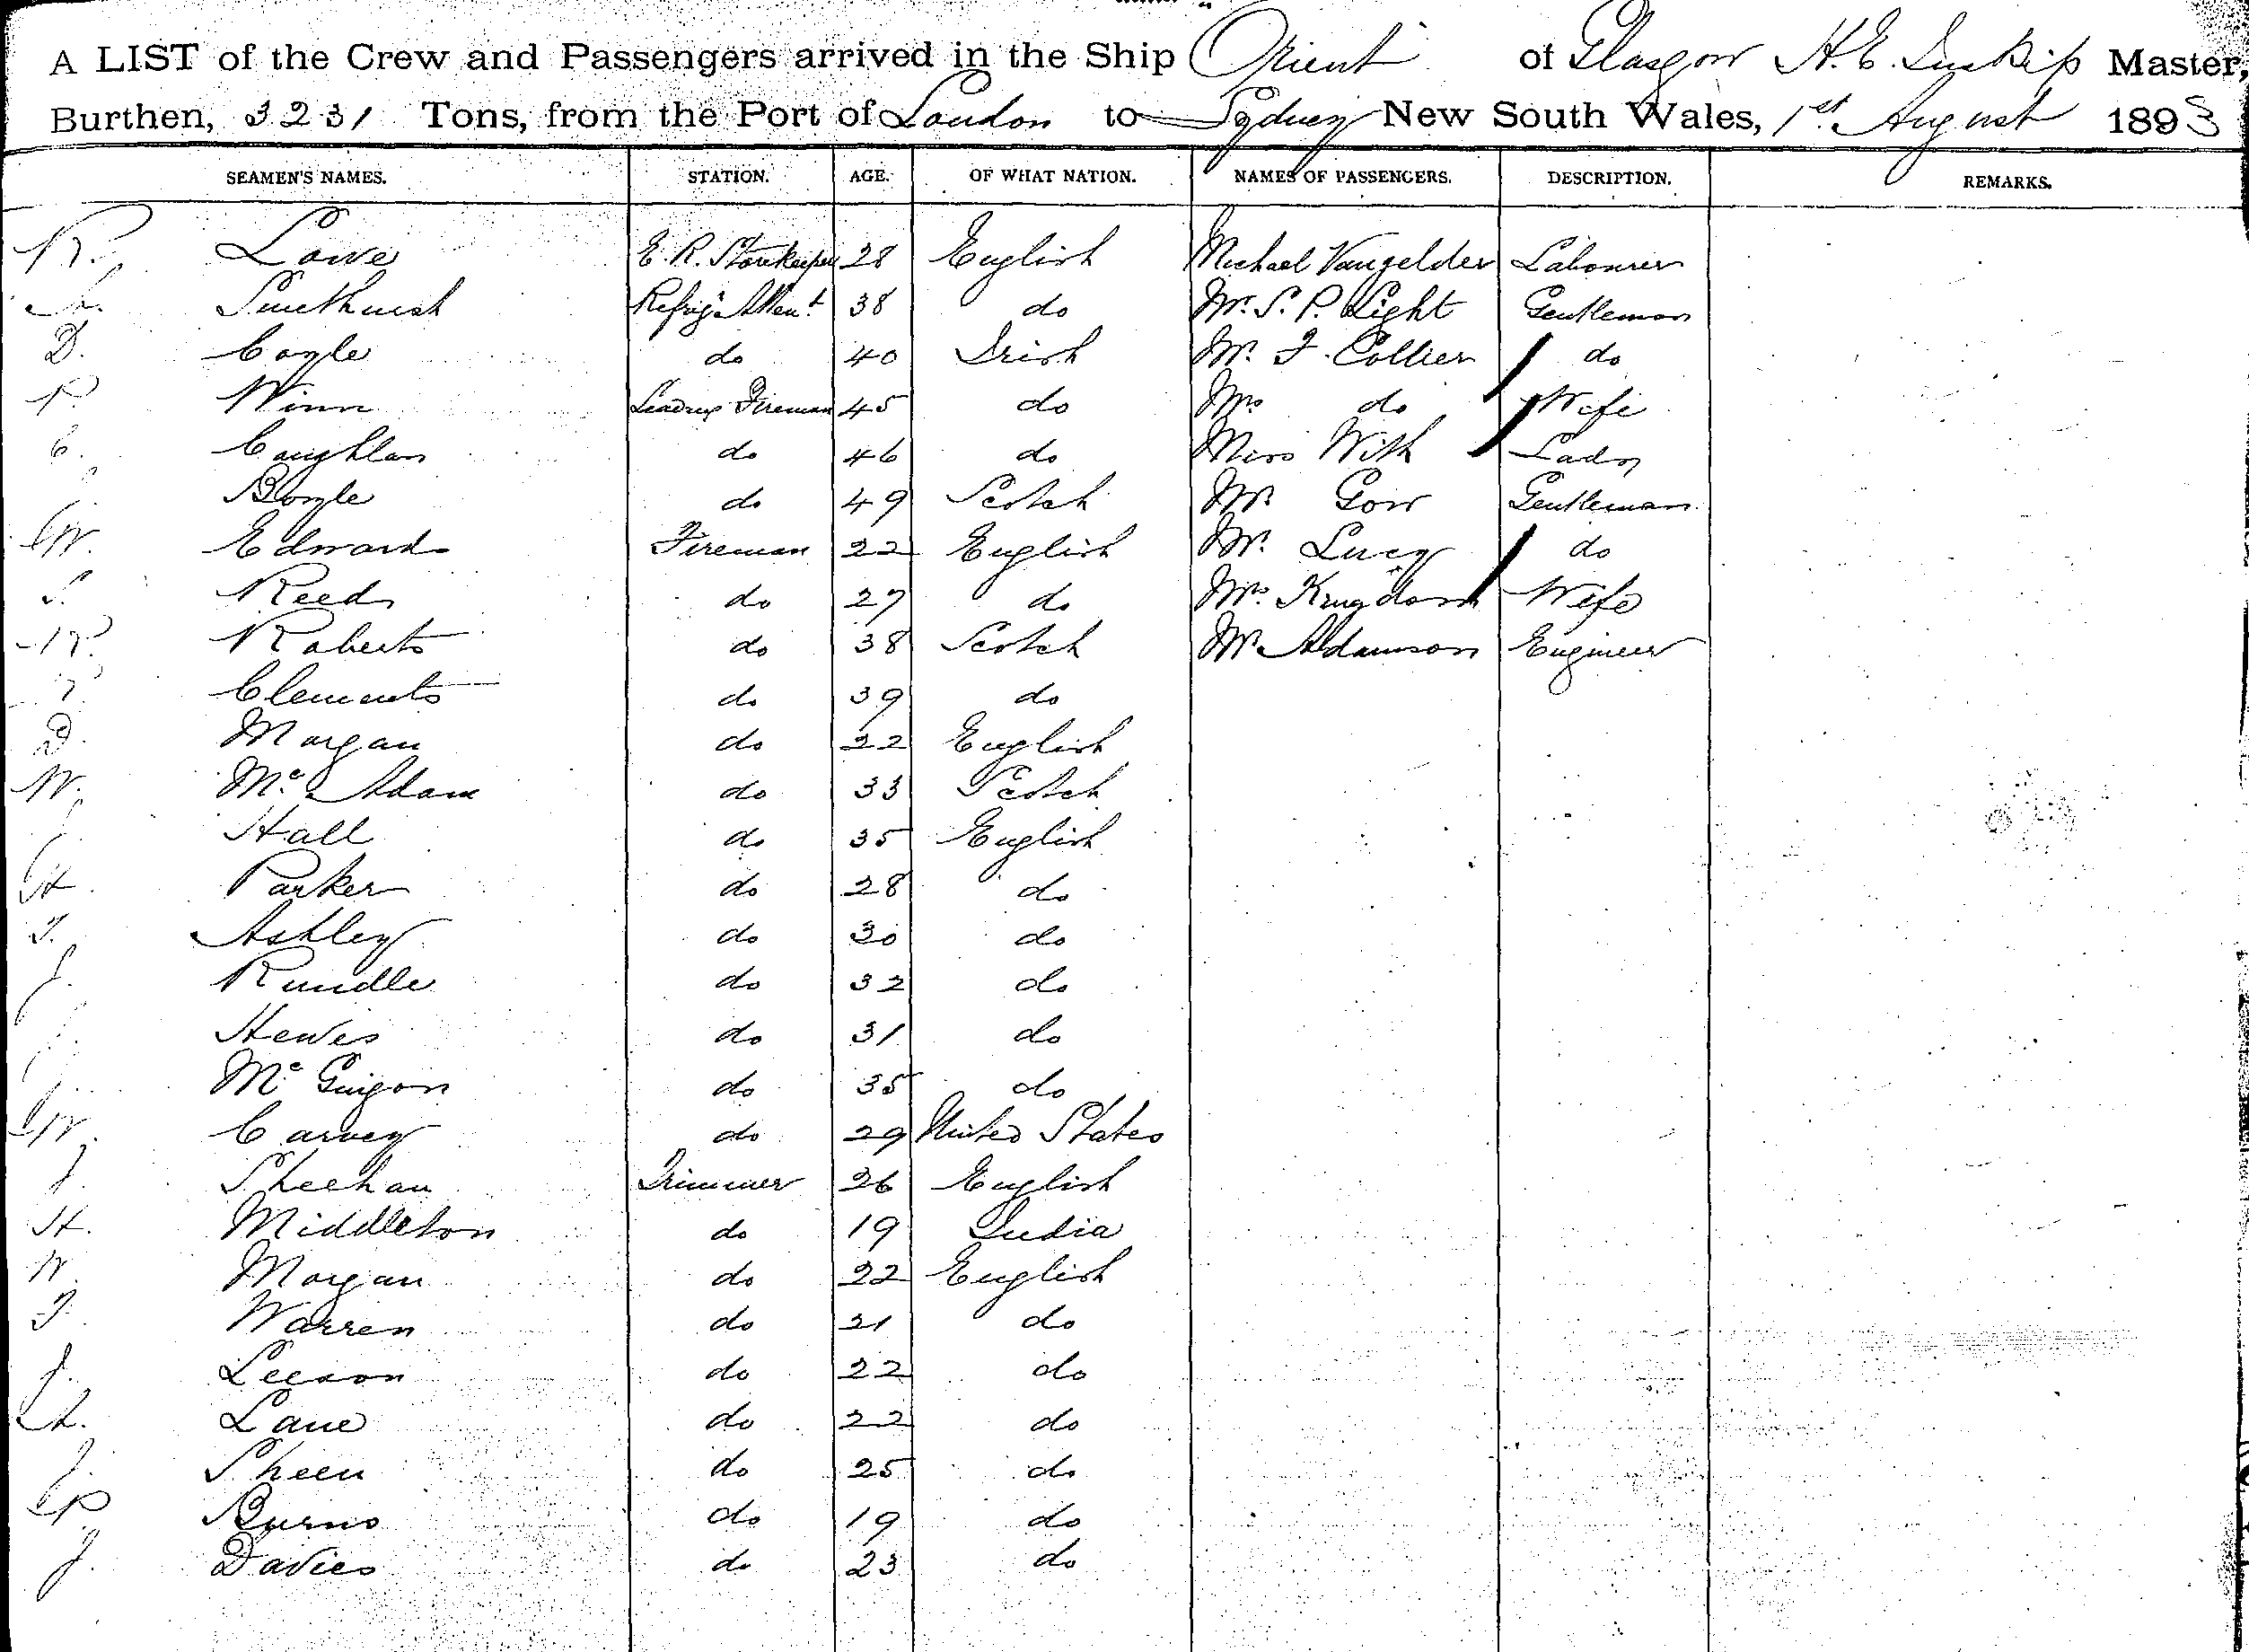 A LIST of the Crew and Passengers arrived in the Ship Orient of Glasgow H. E. Inskip Master,
Burthen, 3231 Tons, from the Port of London to Sydney New South Wales, 1st August 1893
SEAMEN'S NAMES. STATION. AGE. OF WHAT NATION. NAMES OF PASSENGERS. DESCRIPTION. REMARKS.
R. Lowe E. R. Storekeeper 28 English Michael Vangelder Labourer
Smethurst Refrig. Attent 38 do Mr. S. P. Light Gentleman
D. Coyle do 40 Irish Mr. F. Collier do
P. Winn Leading Fireman 45 do Mrs do Wife
C. Coughlan do 46 do Miss With Lady
Boyle do 49 Scotch Mr Gow Gentleman
W. Edwards Fireman 22 English Mr. Lucy do
S. Reed do 27 do Mrs. Kingdom Wife
R. Roberts do 38 Scotch Mr Adamson Engineer
Clements do 39 do
D. Morgan do 22 English
W. Mc Adam do 33 Scotch
Hall do 35 English
H. Parker do 28 do
T. Ashley do 30 do
J. Rundle do 32 do
Hewes do 31 do
Mc Guigon do 35 do
W. Carvey do 29 United States
J. Sheehan Trimmer 26 English
H. Middleton do 19 India
W. Morgan do 22 English
T. Warren do 21 do
J. Leeson do 22 do
Lane do 22 do
J. Sheen do 25 do
P Burns do 19 do
J. Davies do 23 do